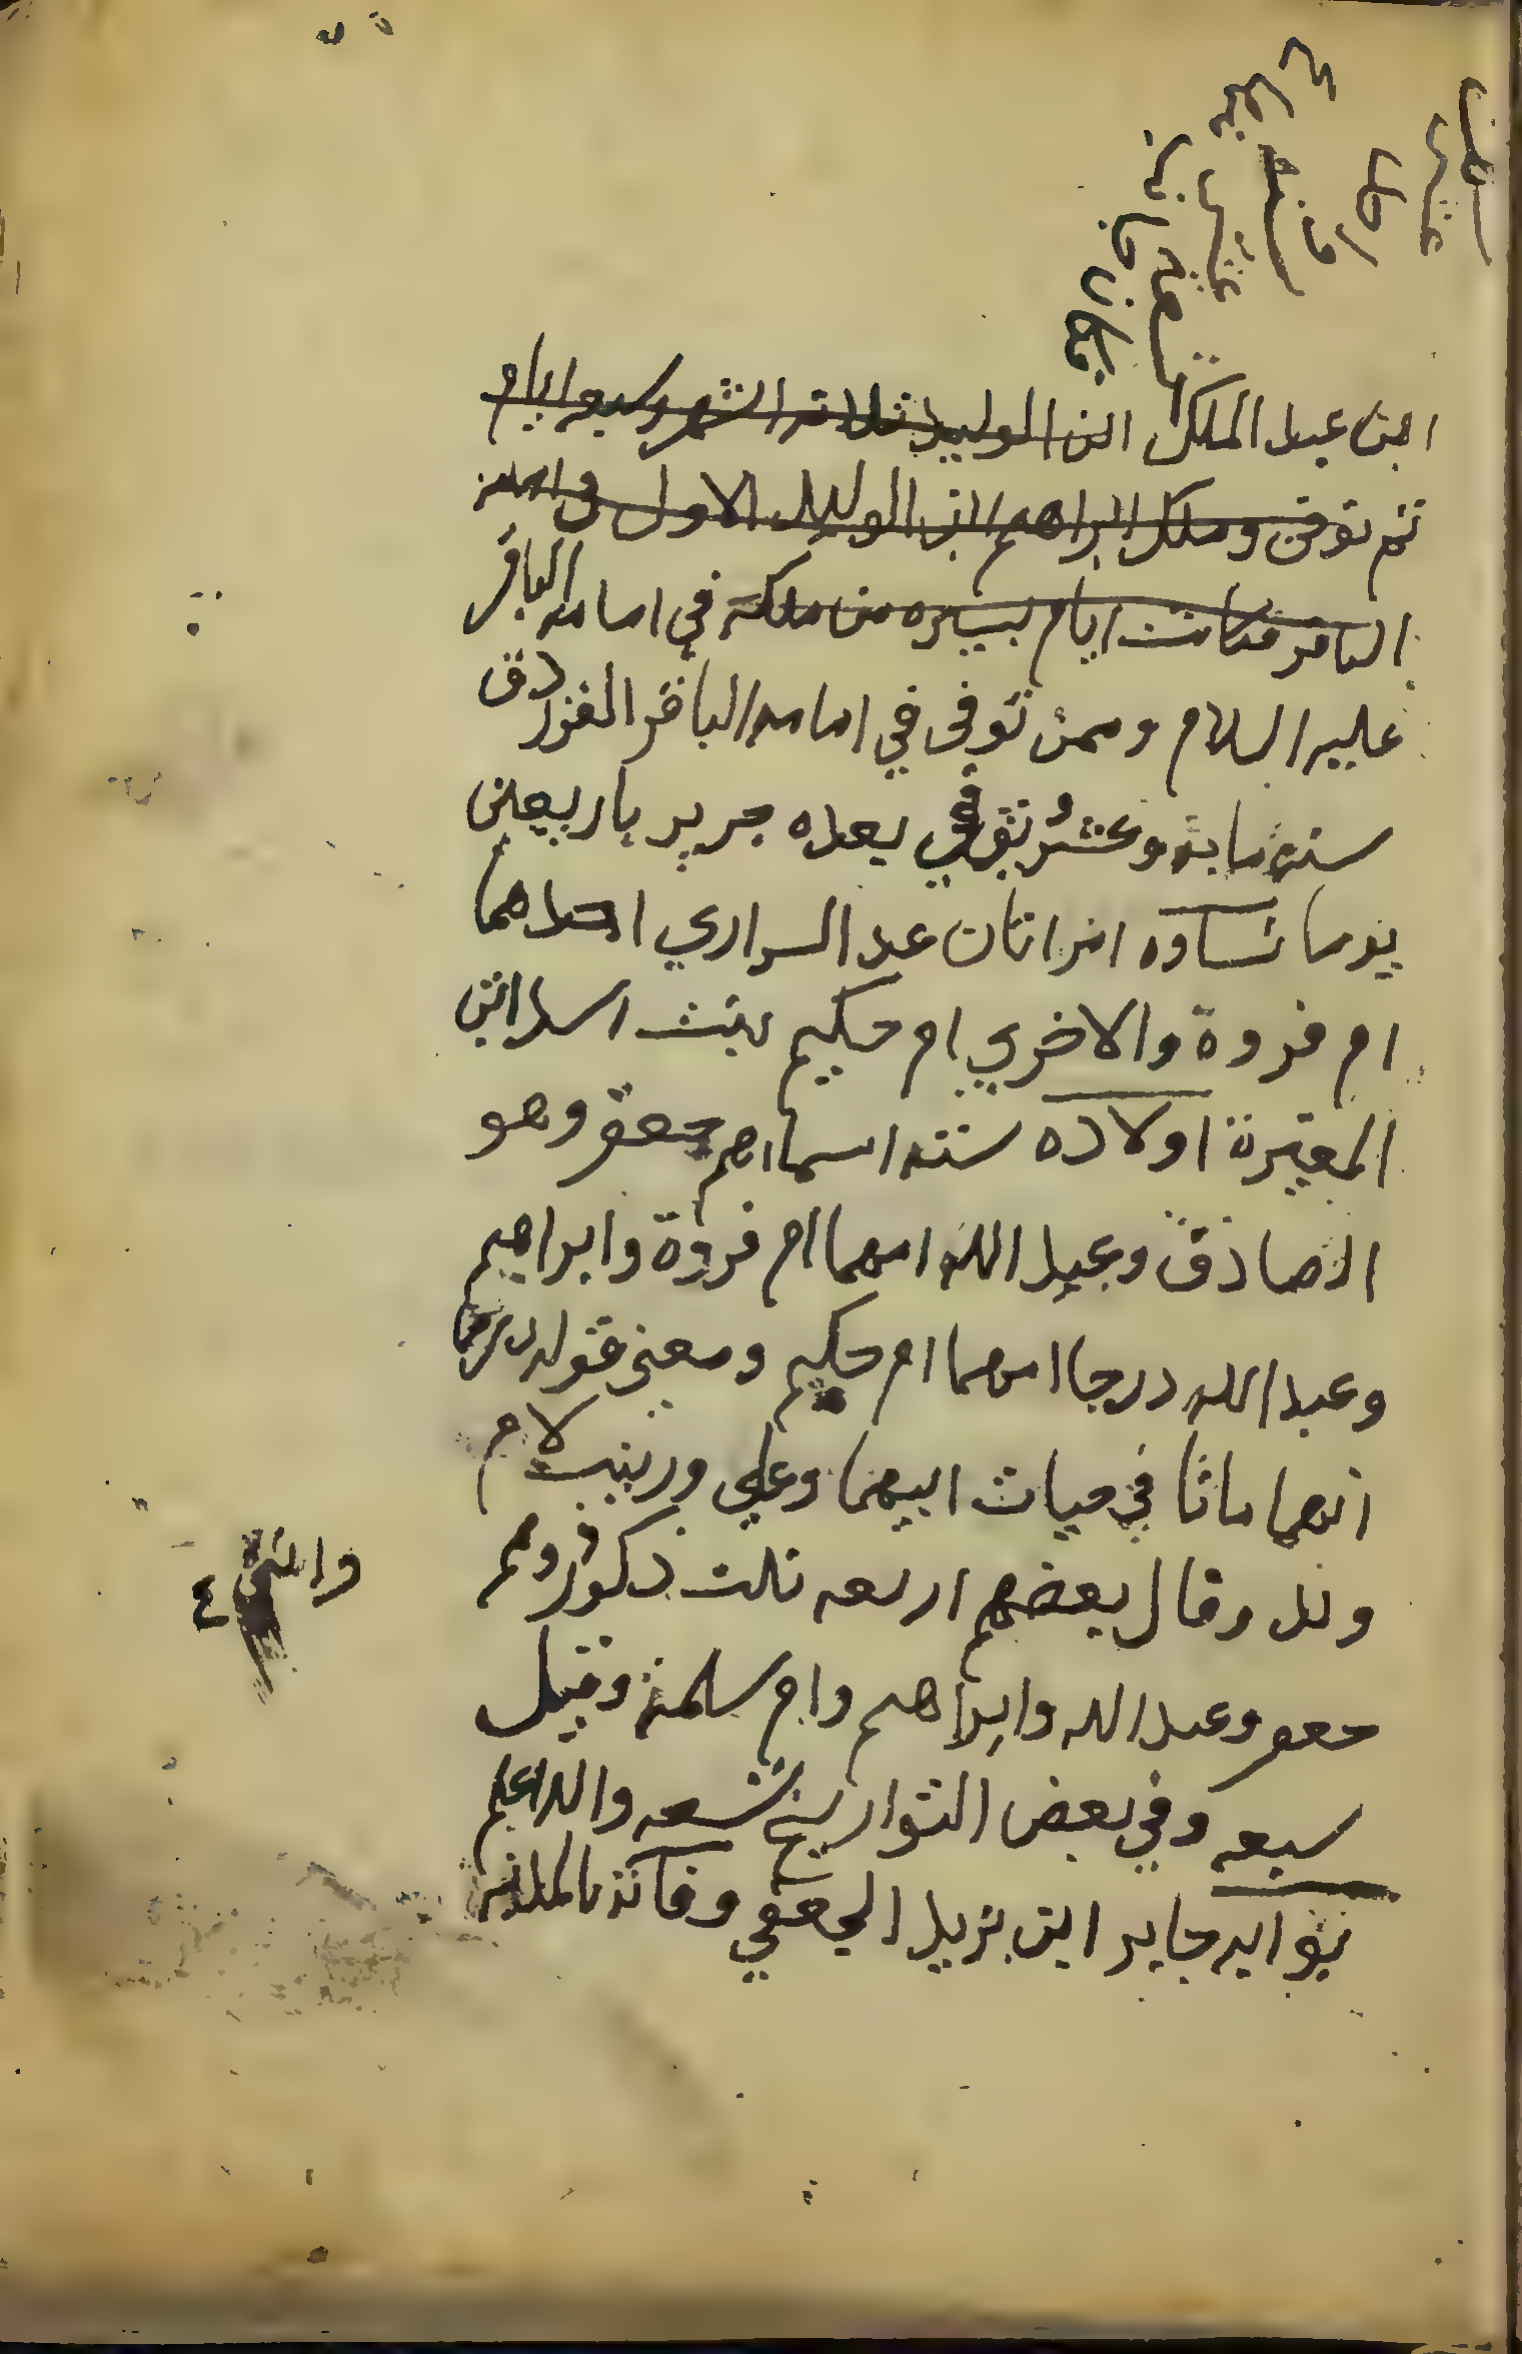 ابن عبد الملك ابن الوليد ثلاثة اشهر وسبعه ايام
ثم توفى وملك ابراهم ابن الوليد الاول في امامه
الباقر فكانت ايام يسيره من ملكه في امامه الباقر
عليه السلام وممن توفى في امامه الباقر الفرزدق
سنة ماية وعشر توفي بعده جرير باربعين
يوما نساوه امراتان عدا السراري احداهما
ام فروة والاخري ام حكيم بنت اسد ابن
المغيرة اولاده سته اسماءهم جعفر وهو
الصادق وعبد الله امهما ام فروة وابراهيم
وعبد الله درجا امهما ام حكيم ومعنى قوله درجا
انهما ماتا في حيات ابيهما وعلي وزينب لام
ولد وقال بعضهم اربعه ثلث ذكور وهم
وابنة ٤
جعفر وعبد الله وابراهم وام سلمة وقيل
سبعه وفي بعض التواريخ تسعه والله اعلم
بوابه جابر ابن يزيد الجعفي وفاته بالمدينه